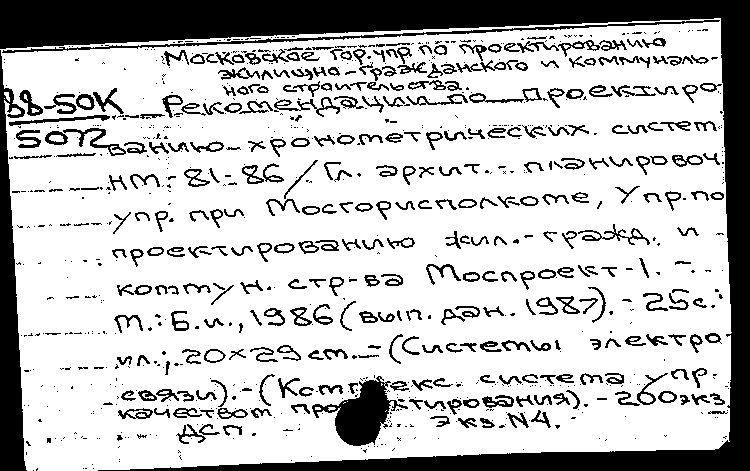 Московское гор. упр. по проектированию
жилищно-гражданского и коммуналь-
ного строительства.
88-50К Рекомендации по проектиро
5072
ванию хронометрических систем
НМ-81-86 / Гл. архит.-планировоч
упр. при Мосгорисполкоме, Упр. по
проектированию жил.-гражд. и
коммун. стр-ва Моспроект-1. -
М.: Б.и., 1986 (вып. дан. 1987). - 25 с.:
ил.; 20×29 см. - (Системы электро
связи). - (Комплекс. система упр.
качеством проектирования). - 200 экз
ДСП. Экз. N4.